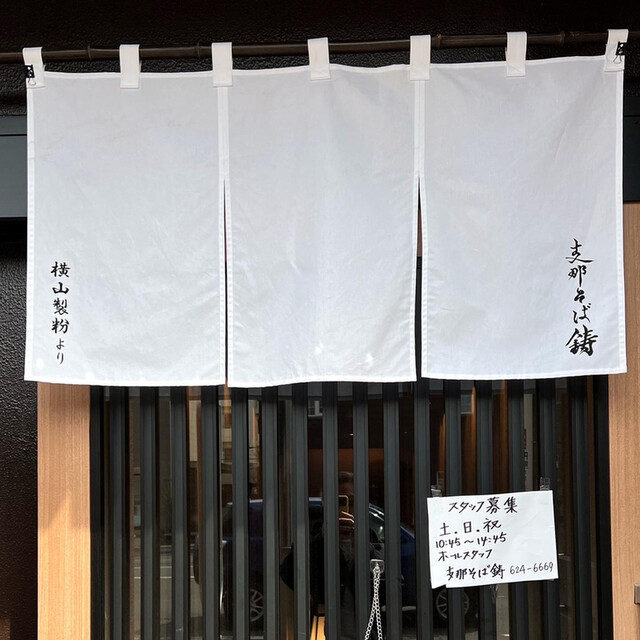 支那そば 鋳
横山製粉より
スタッフ募集
土.日.祝
10:45〜14:45
ホールスタッフ
支那そば鋳 624-6669